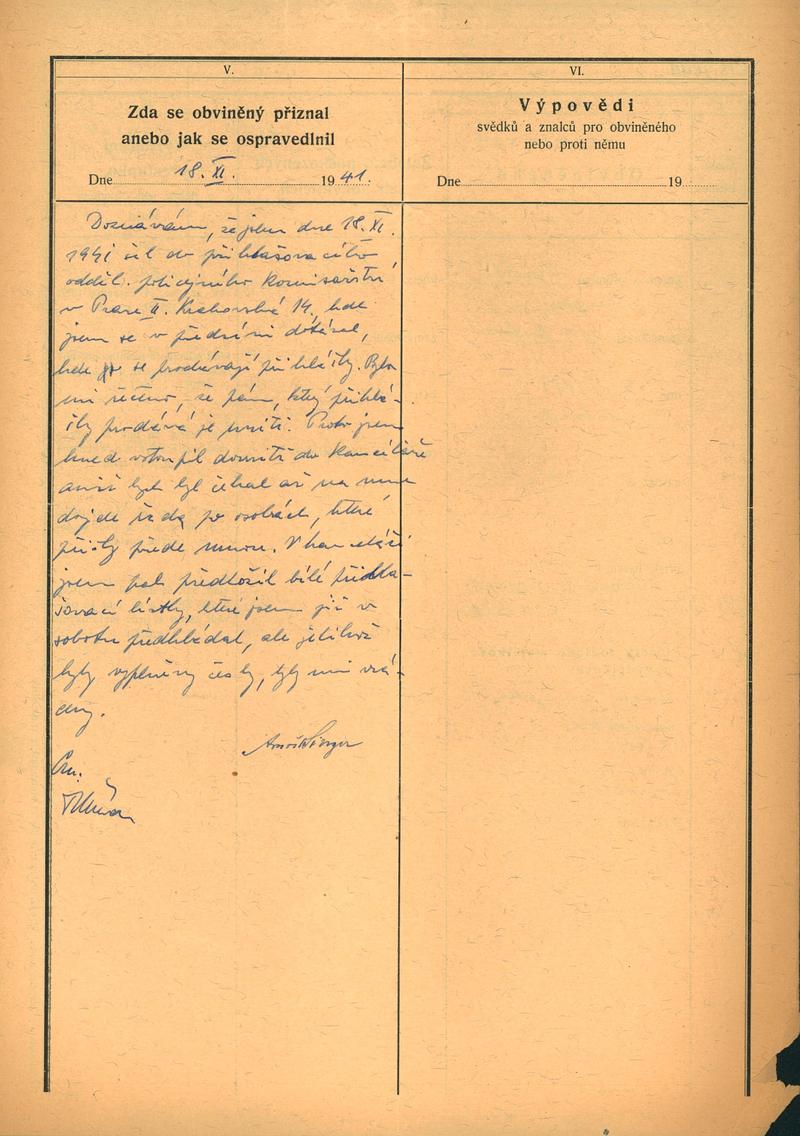 V.
Zda se obviněný přiznal
anebo jak se ospravedlnil
Dne 18. XI. 1941.
Doznávám, že jsem dne 18. XI.
1941 šel do přihlašovacího
odděl. policejního komisařství
v Praze II. Krakovská 14, kde
jsem se v předsíni dotázal,
kde se prodávají přihlášky. Bylo
mi řečeno, že pán, který přihlá-
šky prodává je uvnitř. Proto jsem
hned vstoupil dovnitř do kanceláře
aniž bych byl čekal až na mne
dojde řada po osobách, které
přišly přede mnou. V kanceláři
jsem pak předložil bílé přihla-
šovací lístky, které jsem již v
sobotu předkládal, ale jelikož
byly vyplněny česky, byly mi vrá-
ceny.
VI.
Výpovědi
svědků a znalců pro obviněného
nebo proti němu
Dne 19